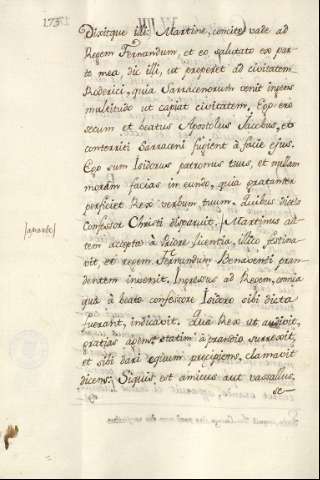 Dixitque illi: Martine, comite vade ad
Regem Fernandum, et eo salutato ex par-
te mea dic illi, ut properet ad civitatem
Roderici, quia Sarracenorum venit ingens
multitudo ut capiat civitatem. Ego ero
secum et beatus Apostolus Jacobus, et
conterriti Sarraceni fugient à facie ejus.
Ego sum Isidorus patronus tuus, et nullam
moram facias in eundo, quia gratanter
perficiet Rex verbum tuum. Quibus dictis
Confessor Christi disparuit. Martinus au-
tem accepta à Priore licentia, illico festina-
vit et regem Fernandum Benaventi pran-
dentem invenit. Ingressus ad Regem, omnia
quæ à beato confessore Isidoro sibi dicta
fuerant, indicavit. Quæ Rex ut audivit,
gratias agens statim à prandio surrexit,
et sibi dari equum præcipiens, clamavit
dicens: Siquis est amicus aut vassallus